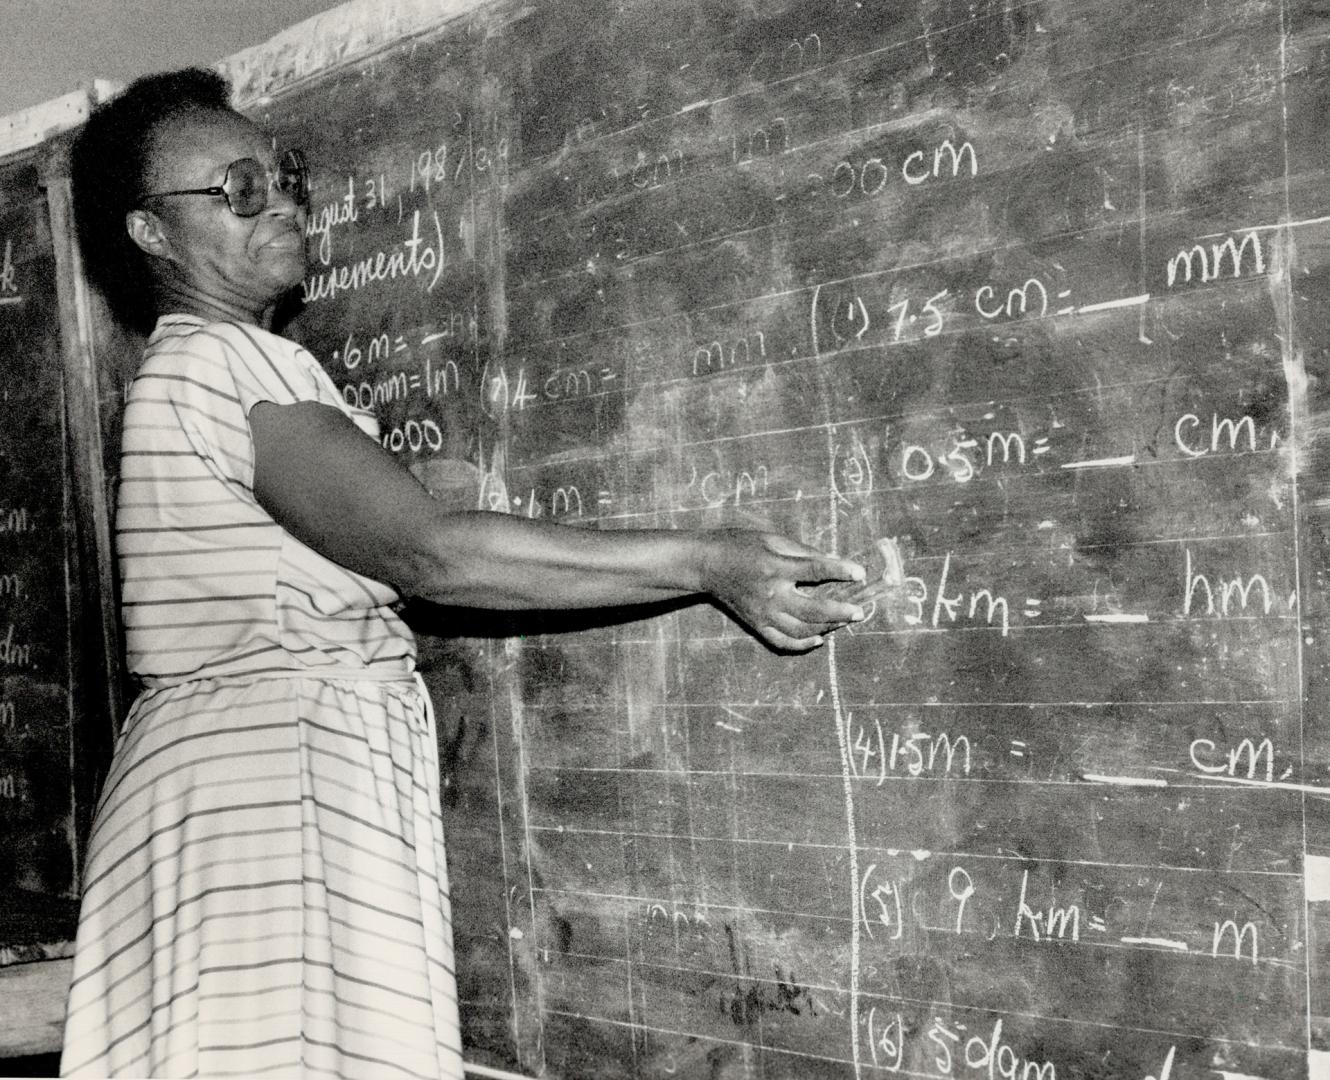 k
cm.
m.
dm.
m.
m.
ugust 31, 198
surements)
.6m = _
00mm = 1m
000
cm
cm 1m
00 cm
(7) 4 cm = mm.
.1m = cm.
(1) 7.5 cm = __ mm
(2) 0.5m = __ cm.
3km = __ hm.
(4) 1.5m = __ cm.
(5) 9 km = __ m
(6) 5dam